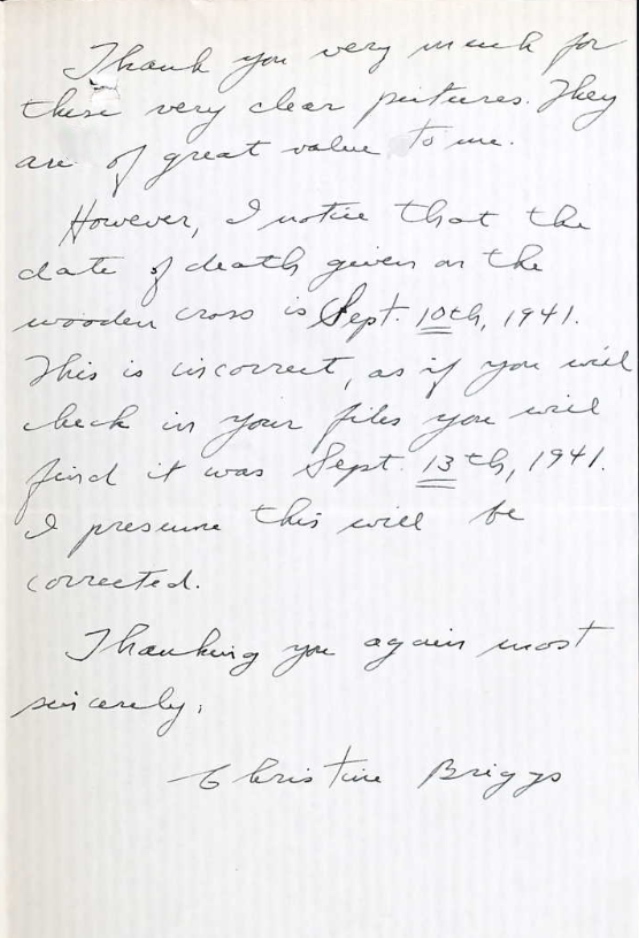 Thank you very much for
these very clear pictures. They
are of great value to me.
However, I notice that the
date of death given on the
wooden cross is Sept. 10th, 1941.
This is incorrect, as if you will
check in your files you will
find it was Sept. 13th, 1941.
I presume this will be
corrected.
Thanking you again most
sincerely,
Christine Briggs